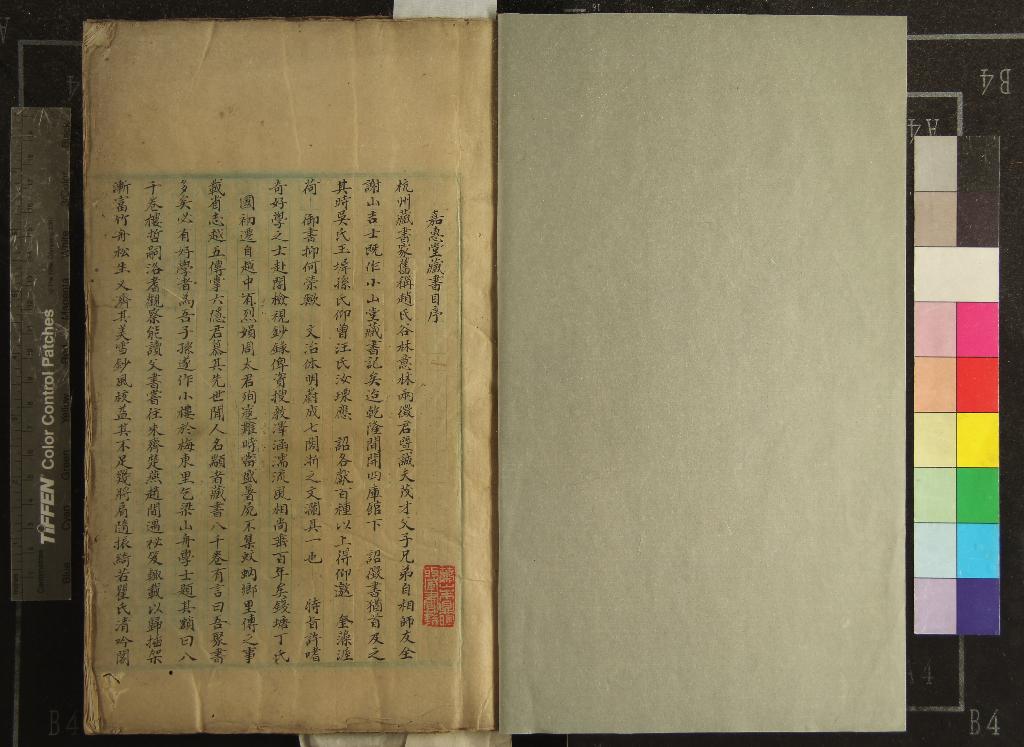 嘉惠堂藏書目序
杭州藏書家舊稱趙氏谷林意林兩徵君暨誠夫茂才父子兄弟自相師友全
謝山吉士既作小山堂藏書記矣迨乾隆間開四庫館下 詔徵書猶首及之
其時吳氏玉墀孫氏仰曾汪氏汝瑮應 詔各獻百種以上得仰邀 奎藻渥
荷 御書抑何榮歟 文治休明蔚成七閣折之文瀾具一也 特旨許嗜
奇好學之士赴閣檢視鈔錄俾資搜教澤涵濡流風相尚垂百年矣錢塘丁氏
國初遷自越中有烈婦周太君殉 難時當盛暑 不集蚊蚋鄉里傳之事
載省志越五傳掌六隱君慕其先世聞人名顗者藏書八千卷有言曰吾聚書
多矣必有好學者為吾子孫遂作小樓於梅東里乞梁山舟學士題其顏曰八
千卷樓哲嗣洛耆觀察能讀父書嘗往來齊楚燕趙間遇秘笈輒載以歸插架
漸富竹舟松生又濟其美雪鈔風校益其不足幾將肩隨振綺若瞿氏清吟閣
TIFFEN Color Control Patches
Blue
Cyan
Green
Yellow
Red
Magenta
White
B4
A4
B4
B4
A4